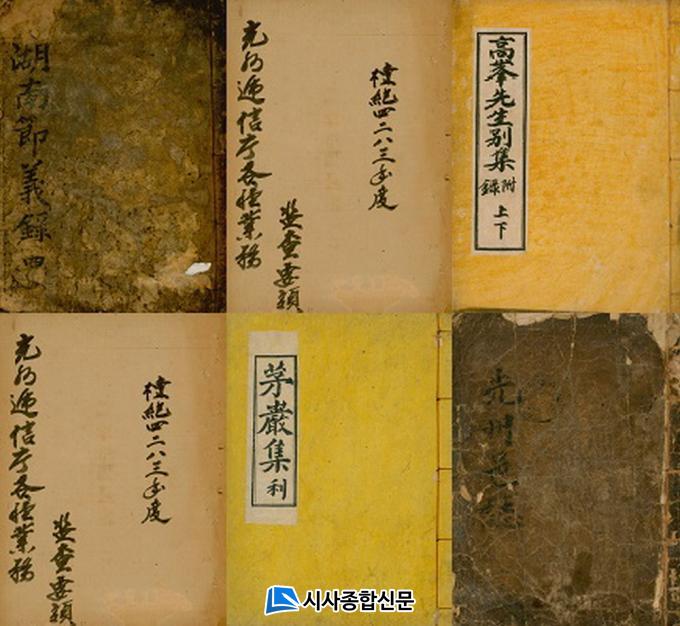 湖南節義錄 四
檀紀四二八三年度
光州遞信庁各種業務
監查要領
高峯先生別集
附錄
上下
檀紀四二八三年度
光州遞信庁各種業務
監查要領
茅巖集 利
光州邑誌
시사종합신문